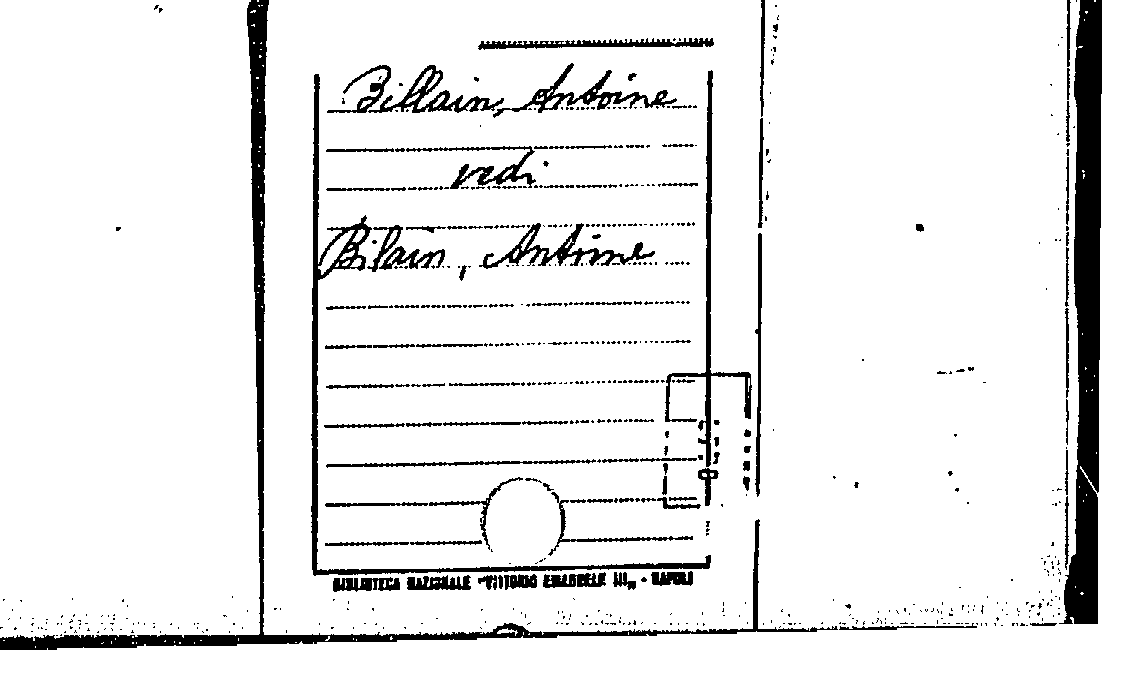 Billain, Antoine
vedi
Bilain, Antoine
BIBLIOTECA NAZIONALE "VITTORIO EMANUELE III„ - NAPOLI